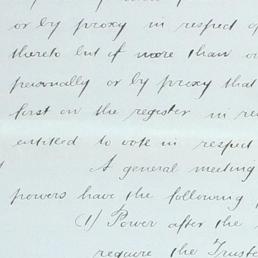 or by proxy in respect of
thereto but if more than o
personally or by proxy that
first on the register in re
entitled to vote in respect
A general meeting
powers have the following
(1) Power after the
require the Truste